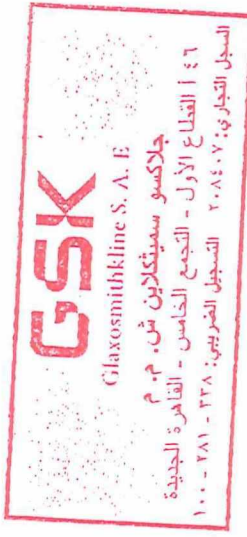 GSK
Glaxosmithkline S. A. E
جلاكسو سميثكلاين ش. م. م
٤٦ أ القطاع الأول - التجمع الخامس - القاهرة الجديدة
السجل التجاري: ٢٠٨٤٠٧ التسجيل الضريبي: ٢٣٨ - ٢٨١ - ١٠٠